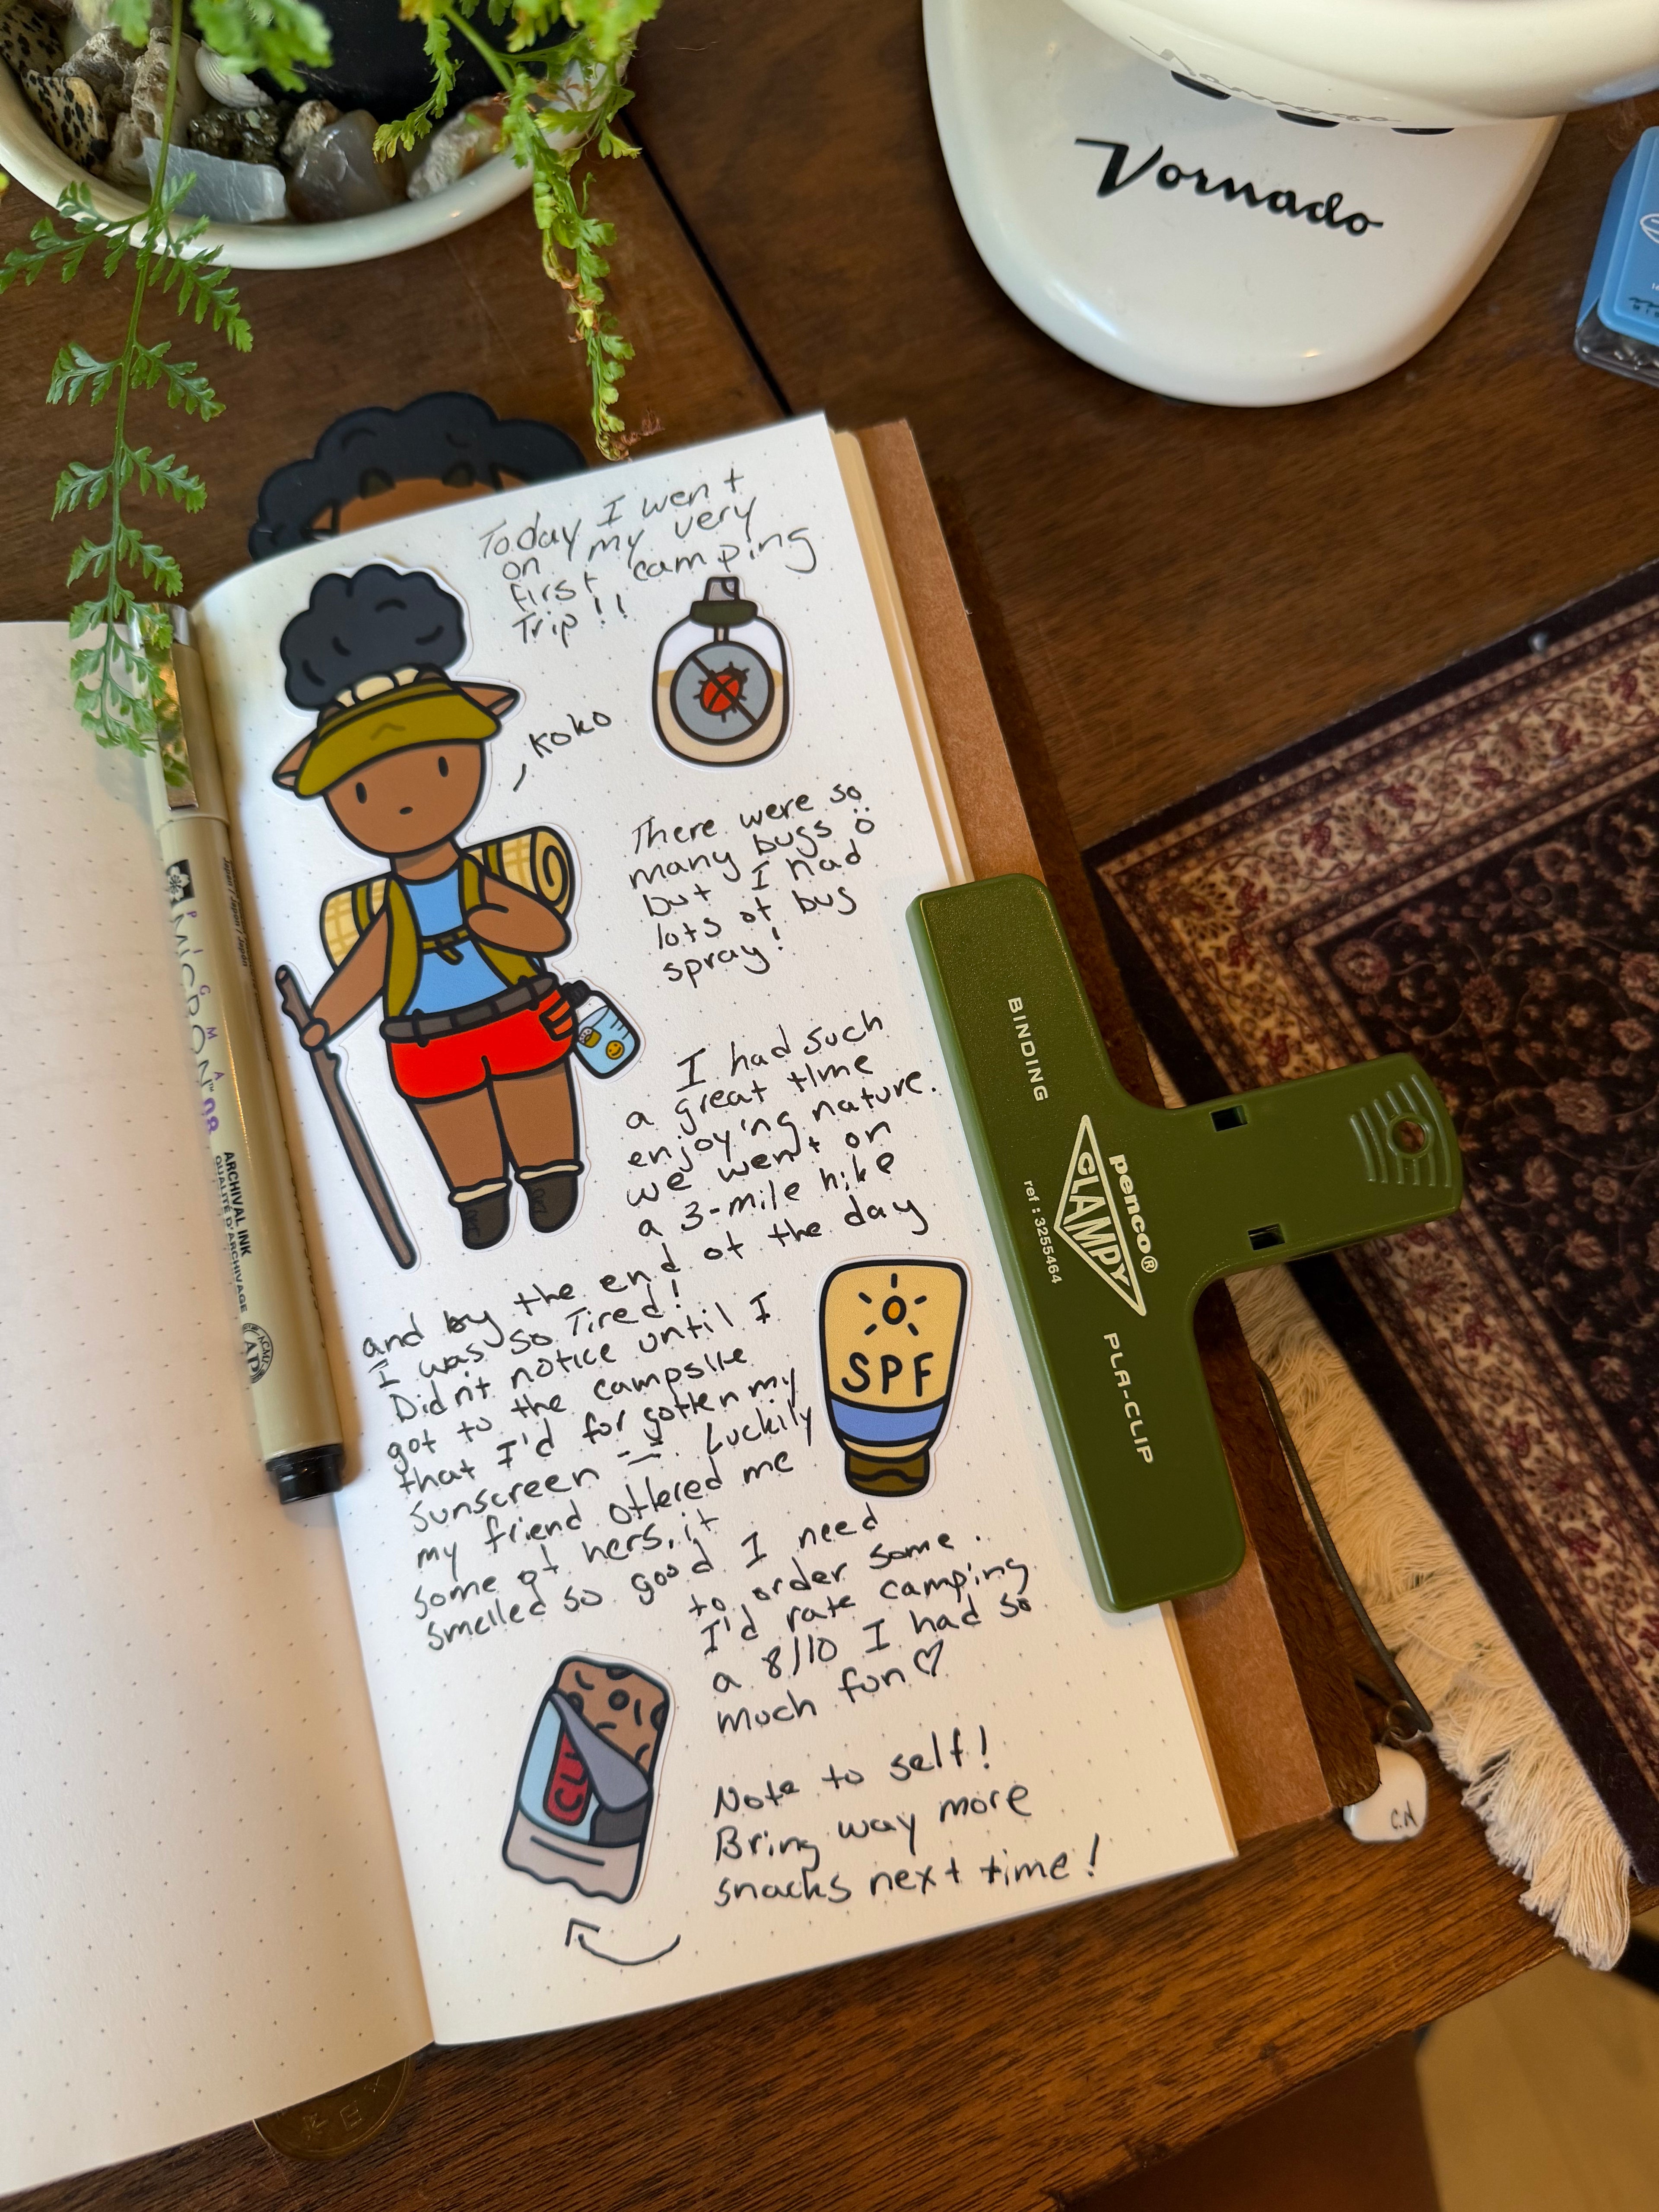 Vornado
Today I went
on my very
first camping
Trip!!
Koko
There were so
many bugs
but I had
lots of bug
spray!
I had such
a great time
enjoying nature.
we went on
a 3-mile hike
and by the end of the day
I was so Tired!
Didn't notice until I
got to the campsite
that I'd forgotten my
Sunscreen -_-. Luckily
my friend offered me
some of hers, it
smelled so good I need
to order some.
I'd rate camping
a 8/10 I had so
much fun ♡
SPF
CLI
Note to self!
Bring way more
snacks next time!
PIGMA
MICRON™ 08
ARCHIVAL INK
QUALITÉ D'ARCHIVAGE
ACMI
AP
Japan / Japon / Japón
BINDING
penco®
CLAMPY
ref : 3255464
PLA-CLIP
C.N